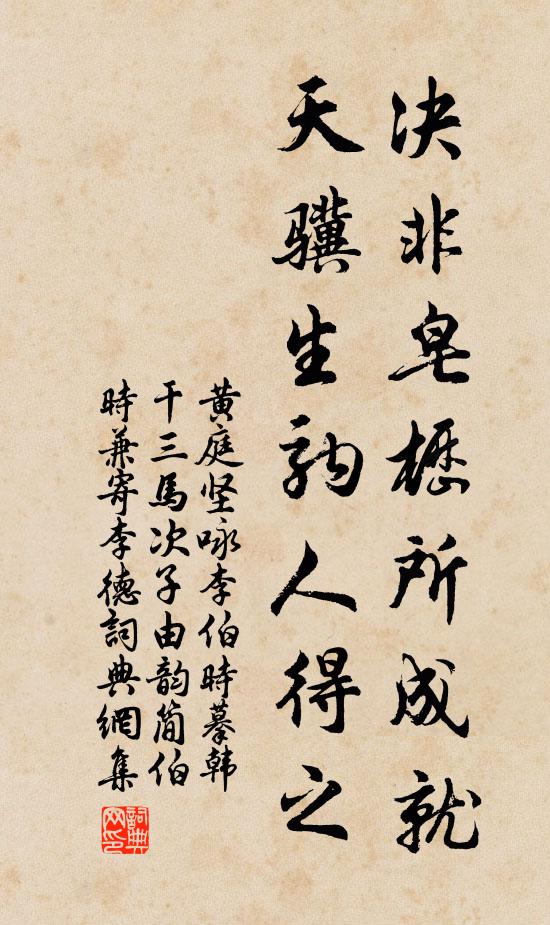 决非皂櫪所成就
天骥生驹人得之
黄庭坚咏李伯時摹韩
干三馬次子由韵简伯
時兼寄李德詞典網集
詞典网印